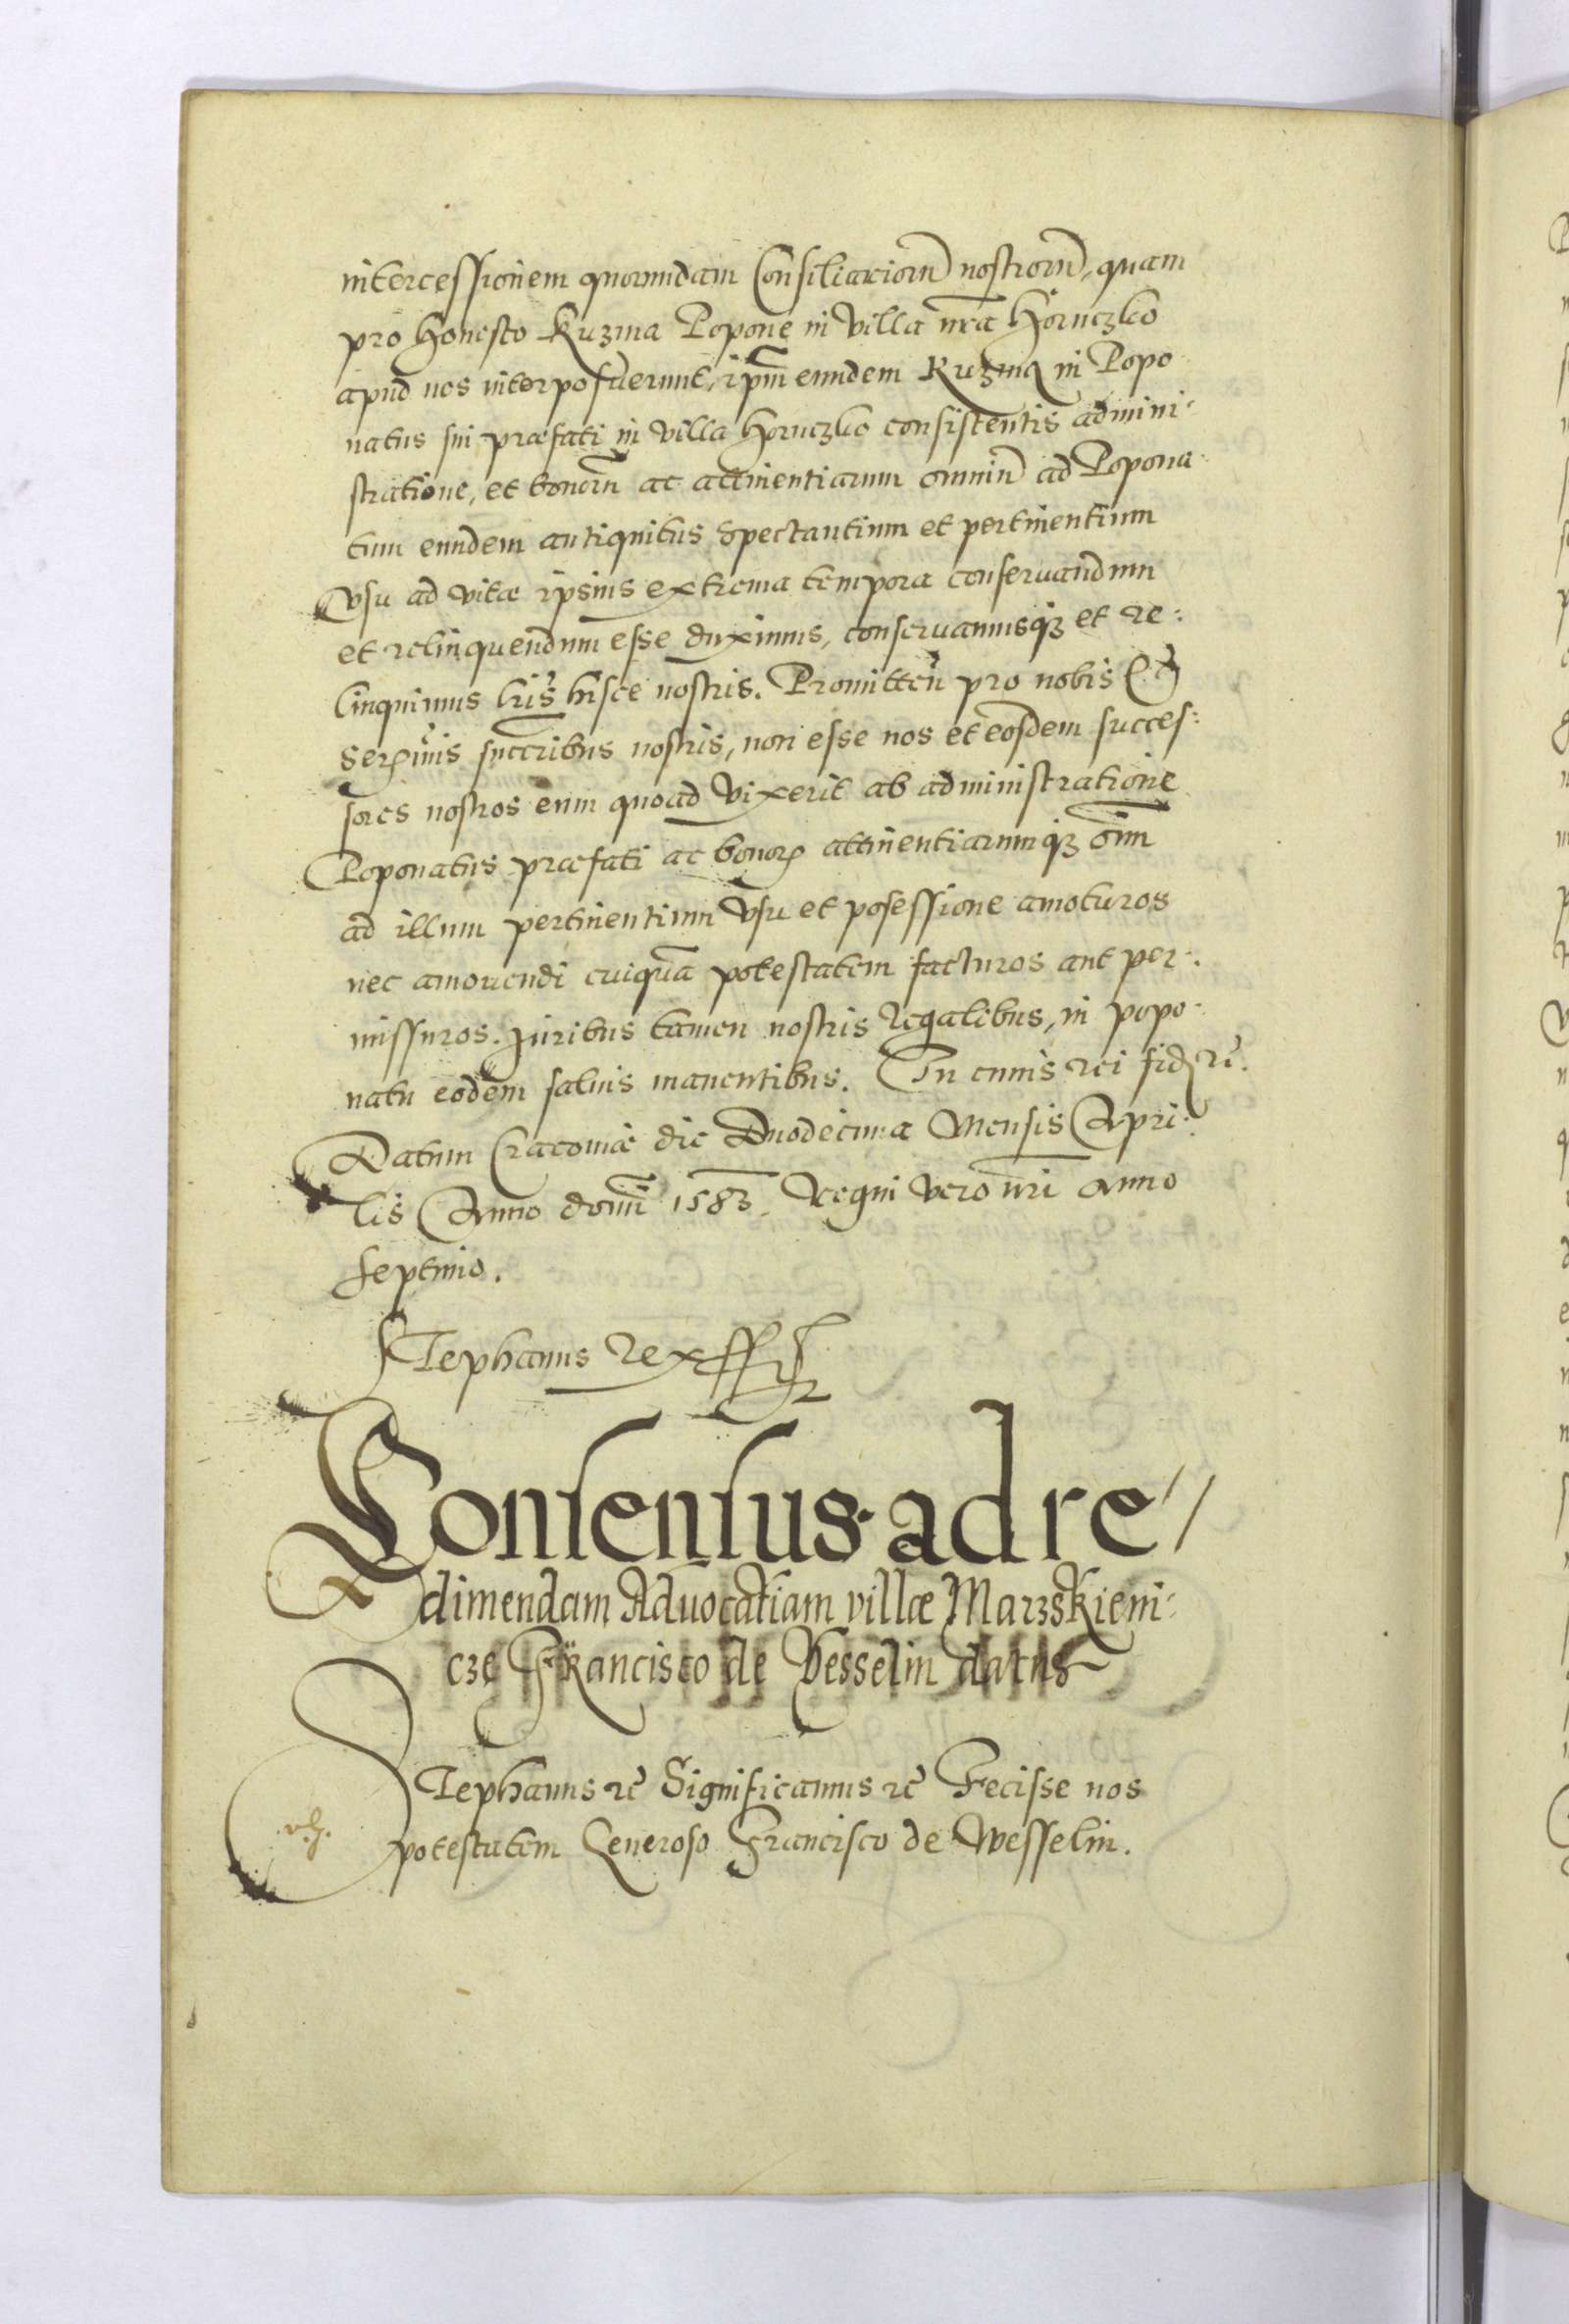 intercessionem quorundam Consiliariorũ nostrorũ, quam
pro honesto Kuzma Popone in villa nr̃a Horuczko
apud nos interposuerunt, ipm̃ eundem Kuzma in Popo-
natus sui præfati in villa Horuczko consistentis admini-
stratione, et bonorũ ac attinentiarum omniũ ad Popona-
tum eundem antiquitus spectantium et pertinentium
Vsu ad vitæ ipsius extrema tempora conseruandum
et relinquendum esse duximus, conseruamusq̃ et re:
linquimus lr̃is hisce nostris. Promitteñ pro nobis et
Ser̃mis succr̃ibus nostris, non esse nos et eosdem succes:
sores nostros eum quoad vixerit ab administratione
Poponatus præfati ac bonor̃ attinentiarumq̃ oĩm
ad illum pertinentium vsu et possessione amoturos
nec amouendi cuiquã potestatem facturos aut per-
missuros. Juribus tamen nostris Regalibus, in popo-
natu eodem saluis manentibus. In cuius rei fid̃ rc̃.
Datum Cracouiæ die Duodecima Mensis Apri-
lis Anno domĩ 1583. Regni vero nr̃i anno
septimo.
Stephanus Rex ss
Consensus ad re//
dimendam Aduocatiam villæ Marzskieni-
cze Francisco de Vesselin datus
Stephanus rc̃ Significamus rc̃ Fecisse nos
potestatem Generoso Francisco de Wesselin.